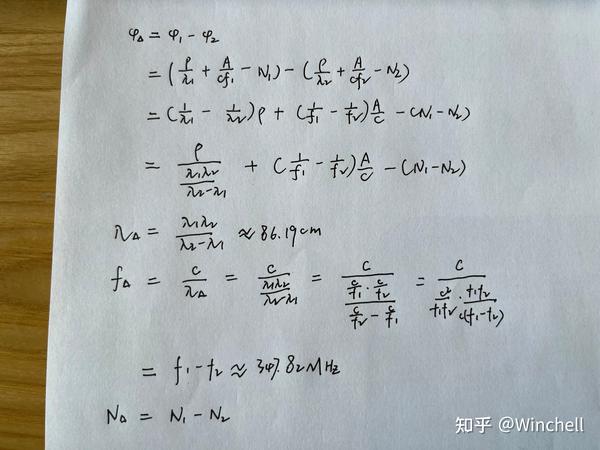 φ_Δ = φ₁ - φ₂
= (ρ/λ₁ + A/(cf₁) - N₁) - (ρ/λ₂ + A/(cf₂) - N₂)
= (1/λ₁ - 1/λ₂)ρ + (1/f₁ - 1/f₂)A/c - (N₁ - N₂)
= ρ/((λ₁λ₂)/(λ₂-λ₁)) + (1/f₁ - 1/f₂)A/c - (N₁ - N₂)
λ_Δ = (λ₁λ₂)/(λ₂-λ₁) ≈ 86.19cm
f_Δ = c/λ_Δ = c/((λ₁λ₂)/(λ₂-λ₁)) = c/((c/f₁ · c/f₂)/(c/f₂ - c/f₁)) = c/(c²/(f₁f₂) · f₁f₂/(c(f₁-f₂)))
= f₁ - f₂ ≈ 347.82MHz
N_Δ = N₁ - N₂
知乎 @Winchell